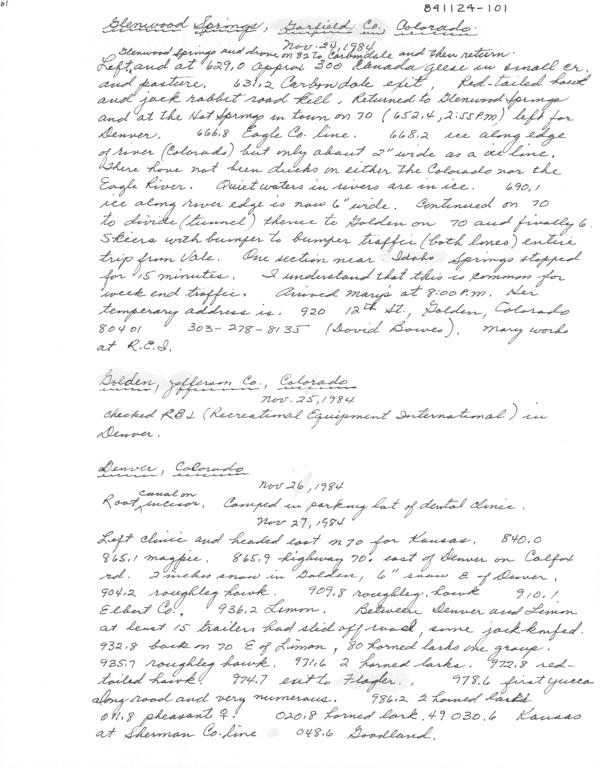 01
841124-101
Glenwood Springs, Garfield Co. Colorado.
Nov. 24, 1984
Glenwood Springs and drove on 82 to Carbondale and then return.
Left and at 629.0 approx 300 Canada geese in small cr.
and pasture. 631.2 Carbondale exit, Red-tailed hawk
and jack rabbit road kill. Returned to Glenwood Springs
and at the Hot Springs in town on 70 (652.4, 2:55 P.M) left for
Denver. 666.8 Eagle Co. line. 668.2 ice along edge
of river (Colorado) but only about 2" wide as a ice line.
There have not been ducks on either the Colorado nor the
Eagle River. Quiet waters in rivers are in ice. 690.1
ice along river edge is now 6" wide. Continued on 70
to divide (tunnel) thence to Golden on 70 and finally 6.
Skiers with bumper to bumper traffic (both lanes) entire
trip from Vale. One section near Idaho Springs stopped
for 15 minutes. I understand that this is common for
week end traffic. Arrived Mary's at 8:00 P.M. Her
temperary address is. 920 12th St., Golden, Colorado
80401 303-278-8135 (David Bowes). Mary works
at R.E.I.
Golden, Jefferson Co., Colorado
Nov. 25, 1984
Checked REI (Recreational Equipment International) in
Denver.
Denver, Colorado
Nov 26, 1984
canal on
Root incisor. Camped in parking lot of dental clinic.
Nov 27, 1984
Left clinic and headed east on 70 for Kansas. 840.0
865.1 magpie. 865.9 highway 70. east of Denver on Calfax
rd. 2 inches snow in Golden, 6" snow E of Denver.
904.2 roughleg hawk. 909.8 roughleg. hawk 910.1
Elbert Co. 936.2 Limon. Between Denver and Limon
at least 15 trailers had slid off road, some jack-knifed.
932.8 back on 70 E of Limon, 80 horned larks one group.
935.7 roughleg hawk. 971.6 2 horned larks. 972.8 red-
tailed hawk. 974.7 exit to Flagler. 978.6 first yucca
along road and very numerous. 986.2 2 horned larks
011.8 pheasant ♀. 020.8 horned lark. 49 030.6 Kansas
at Sherman Co. line 048.6 Goodland.